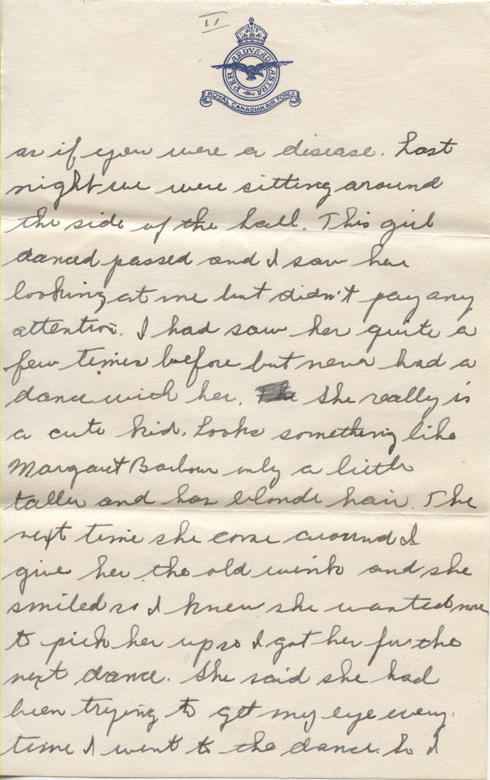 11
PER ARDUA AD ASTRA
ROYAL CANADIAN AIR FORCE
as if you were a disease. Last
night we were sitting around
the side of the hall. This girl
danced passed and I saw her
looking at me but didn't pay any
attention. I had saw her quite a
few times before but never had a
dance with her. She really is
a cute kid. Looks something like
Margaret Barbour only a little
taller and has blonde hair. The
next time she come around I
give her the old wink and she
smiled so I knew she wanted me
to pick her up so I got her for the
next dance. She said she had
been trying to get my eye every
time I went to the dance. So I